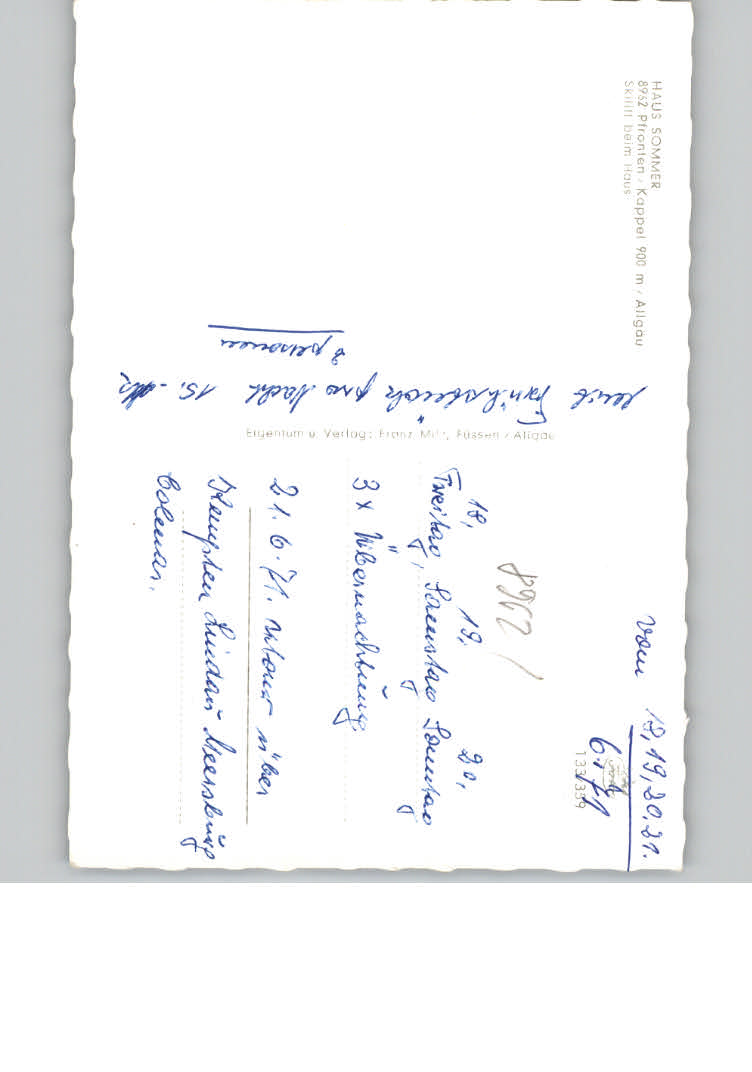 HAUS SOMMER
8962 Pfronten-Kappel 900 m / Allgäu
Skilift beim Haus
mit Frühstück pro Nacht 15.-
2 personen
Eigentum u. Verlag: Franz Milz, Füssen / Allgäu
vom 18, 19, 20, 21.
6. 71
133/359
8962
18, 19, 20,
Freitag, Samstag Sonntag
3 x Übernachtung
21. 6. 71. über
Kempten Lindau Meersburg